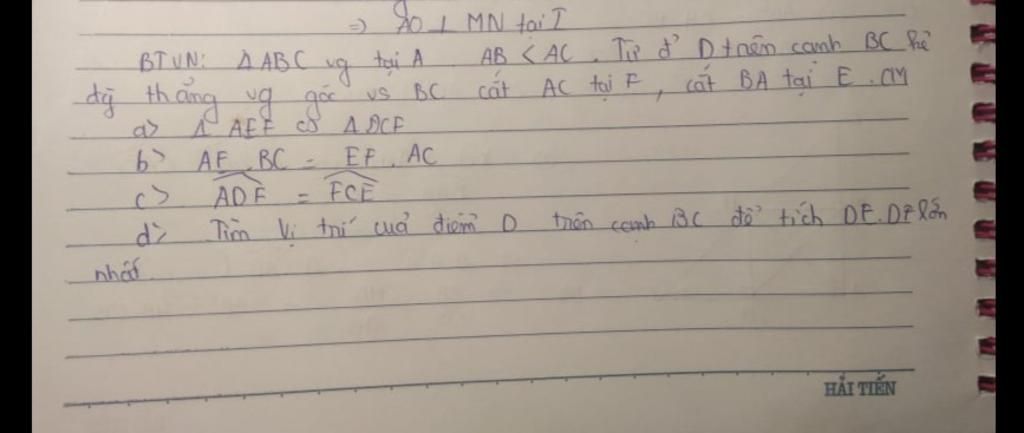 => AO ⊥ MN tại I
BTVN: Δ ABC vg tại A AB < AC. Từ đ' D trên cạnh BC kẻ
đg thẳng vg góc vs BC cắt AC tại F, cắt BA tại E. CM
a> Δ AEF ∽ Δ DCF
b> AF. BC = EF. AC
c> \widehat{ADF} = \widehat{FCE}
d> Tìm vị trí của điểm D trên cạnh BC để tích DE.DF lớn
nhất.
HẢI TIẾN